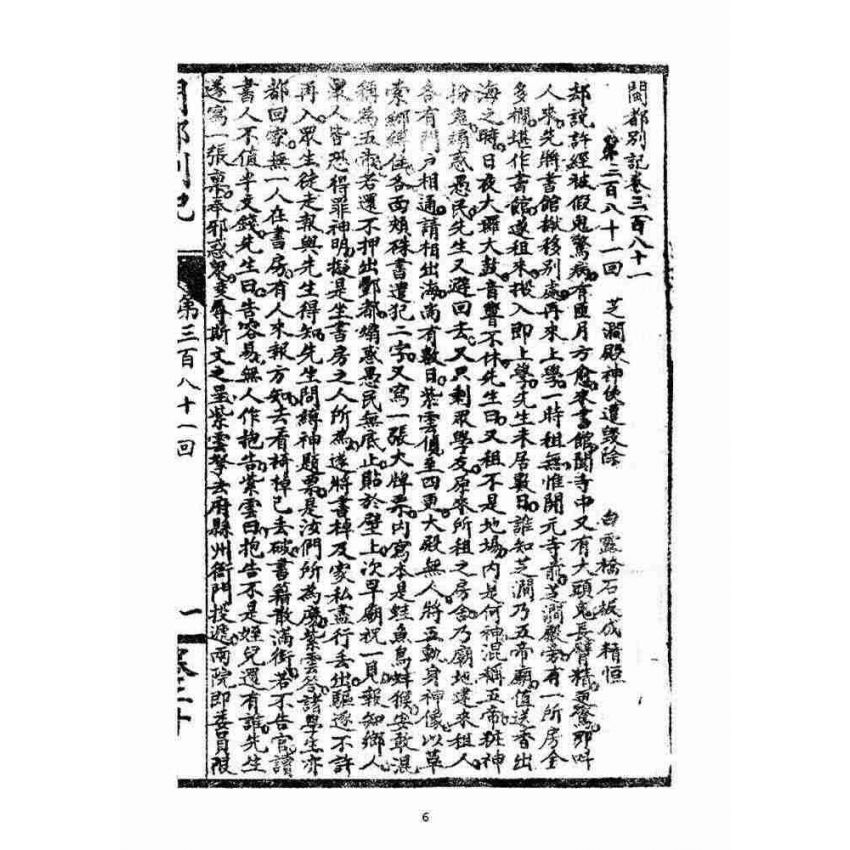 閩都別記卷三百八十一
第三百八十一回 芝澗殿神使遭毀除 白露橋石板成精怪
却說許經被假鬼驚病有匝月方愈來書館聞寺中又有大頭鬼長臂精更驚即叫
人來先將書館搬移別處再來上學一時租無惟開元寺前芝澗殿旁有一所房全
多欄堪作書館遂租來搬入即上學先生未居數日誰知芝澗乃五帝廟值送香出
海之時日夜大鑼大鼓音響不休先生曰又租不是地場內是何神混稱五帝粧神
扮鬼煽惑愚民先生又避回去又只剩眾學友原來所租之房舍乃廟地建來租人
各有門戶相通請相出海尚有數日紫雲值至四更大殿無人將五軀身神像以草
索綁縛住各面頰硃書遭犯二字又寫一張大牌票內寫本是蛙魚鳥蚌猴安敢混
稱為五帝若還不押出酆都煽惑愚民無底止貼於壁上次早廟祝一見報知鄉人
眾人皆恐得罪神明擬是坐書房之人所為遂將書棹及家私盡行丟出驅逐不許
再入眾生徒走報與先生得知先生問縛神題票是汝們所為麼紫雲答諸學生亦
都回家無一人在書房有人來報方知去看椅棹已丟破書籍散滿街若不告官讀
書人不值半文錢先生曰告容易無人作抱告紫雲曰抱告不是姪兒還有誰先生
遂寫一張稟奉邪惑眾辱斯文之呈紫雲拏去府縣州衙門投遞兩院即委員限
第三百八十一回
一
6